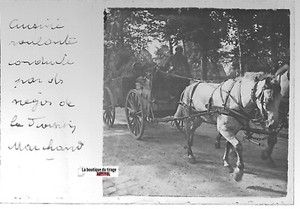 Cuisine
roulante
conduite
par des
nègres de
la
Marchand
La boutique du tirage